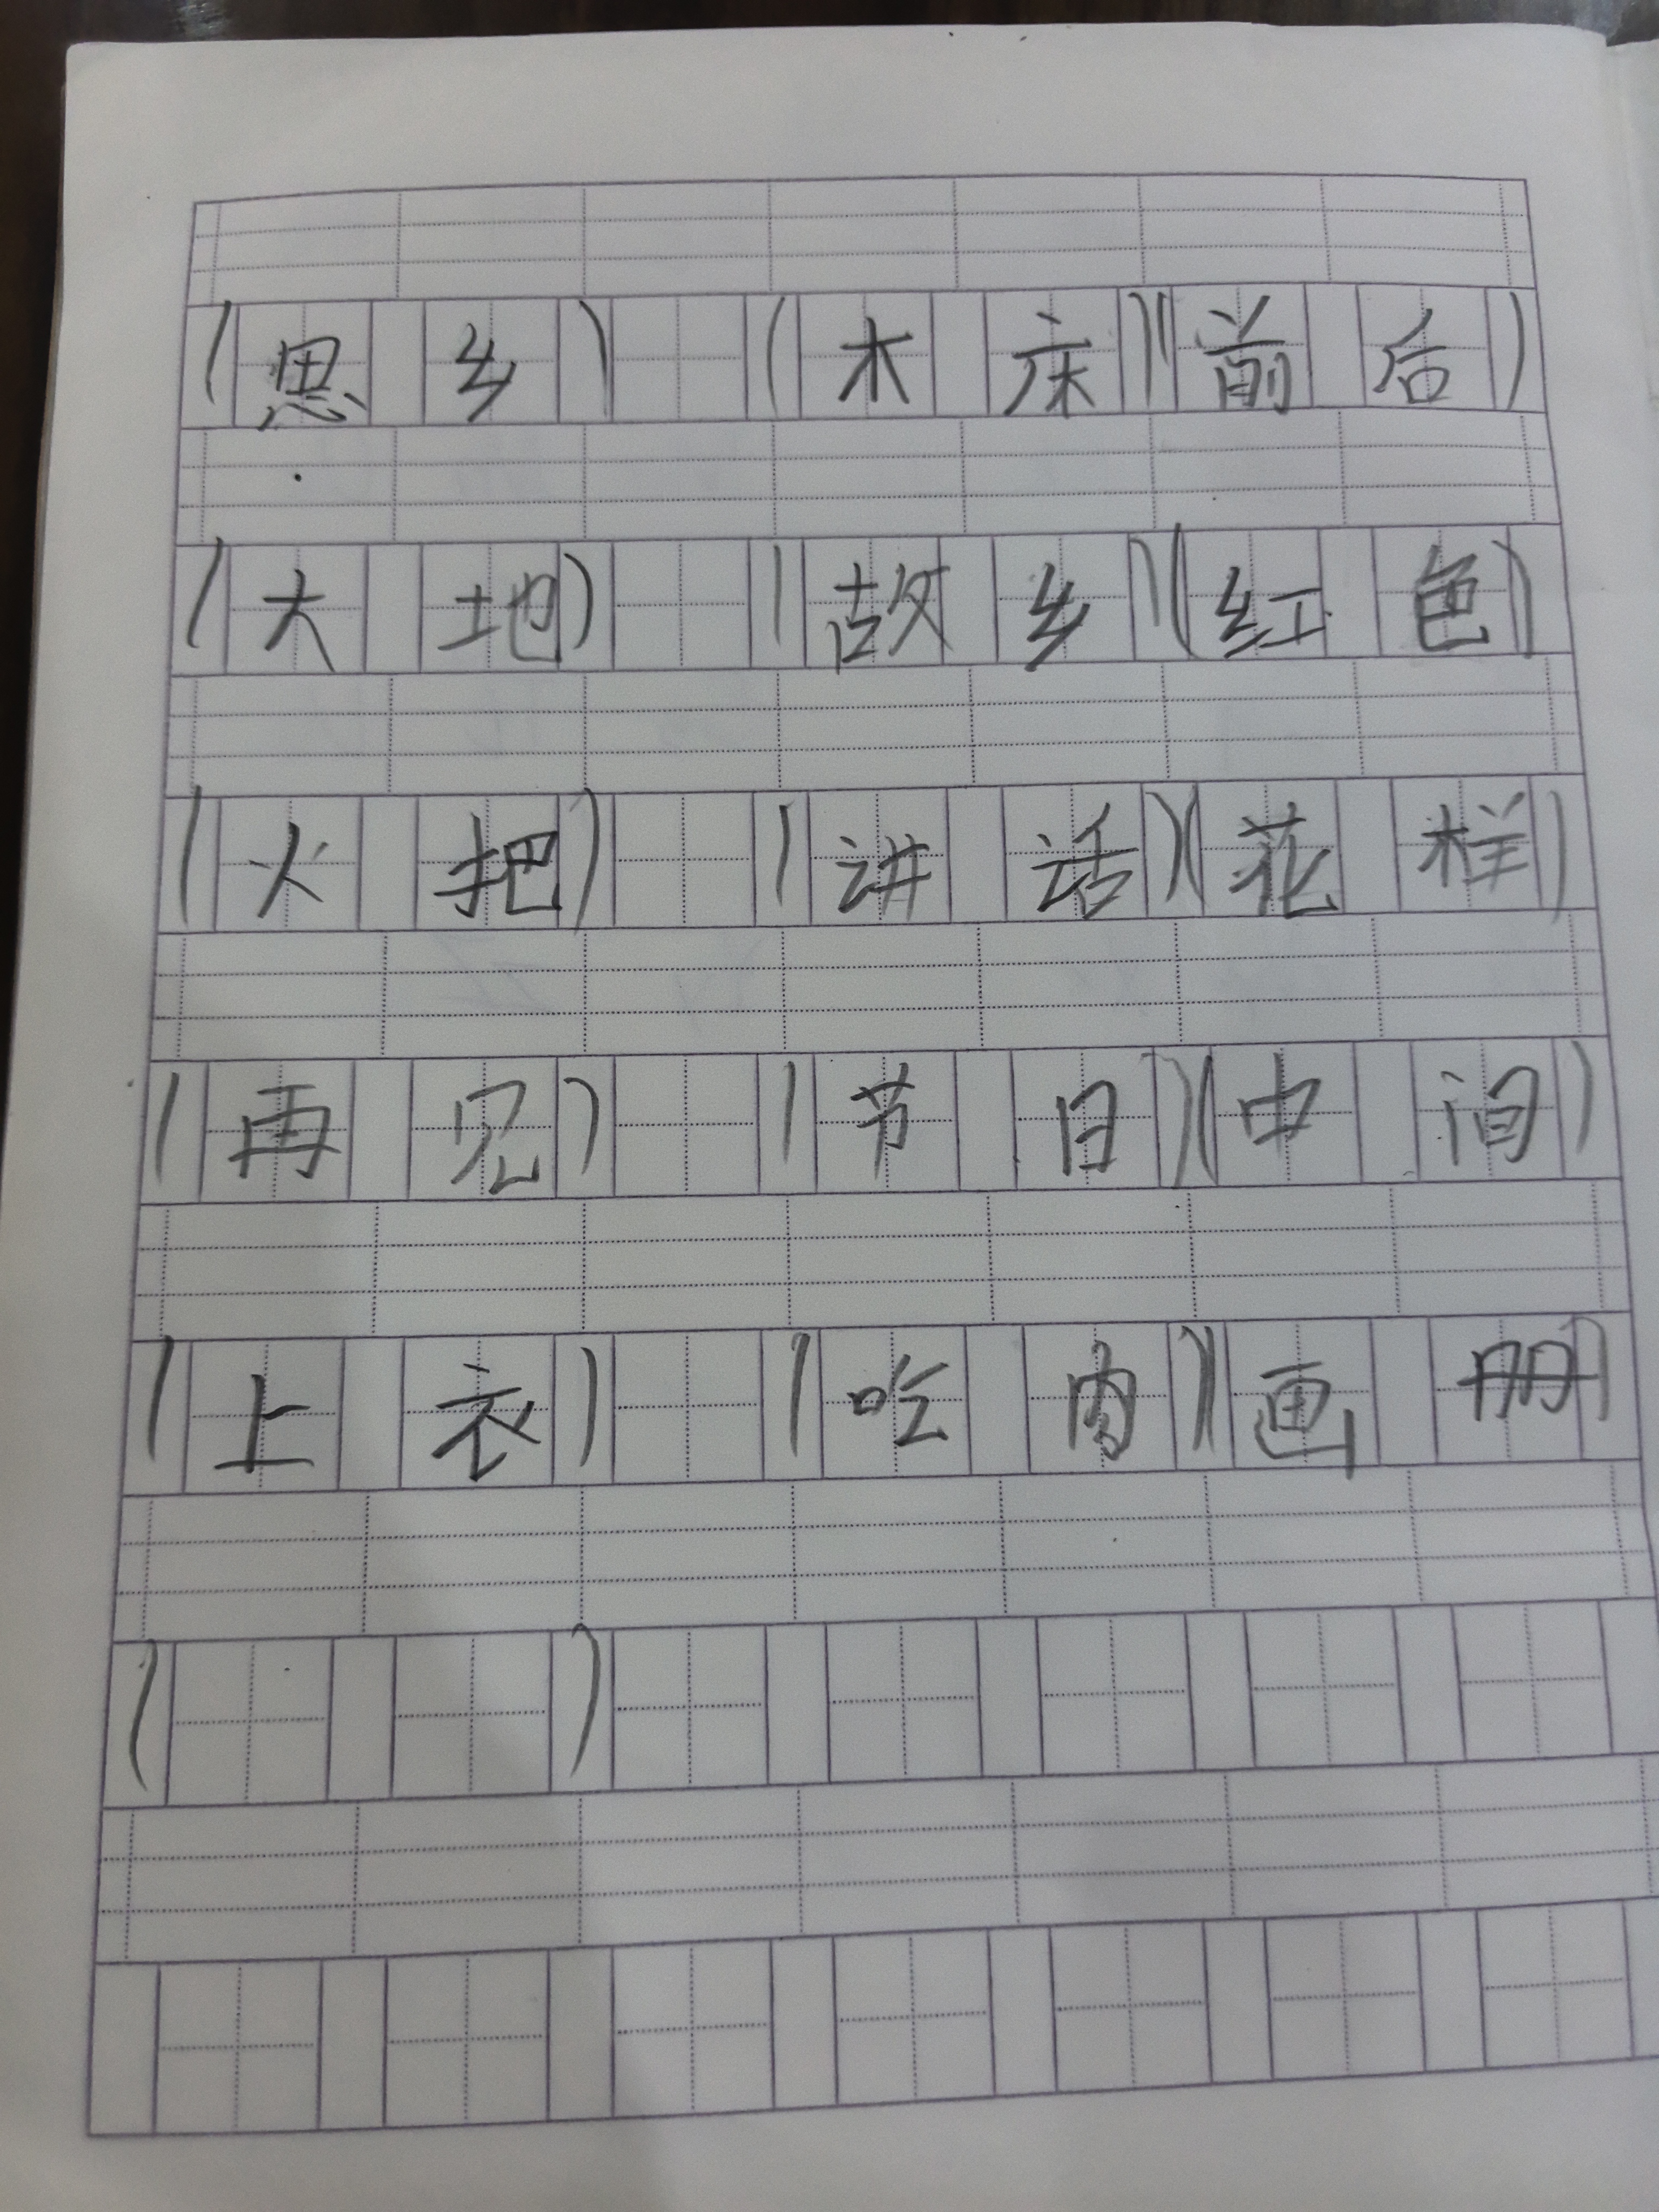 (思乡) (木床)(前后)
(大地) (故乡)(红色)
(火把) (讲话)(花样)
(再见) (节日)(中间)
(上衣) (吃肉)(画册)
( )